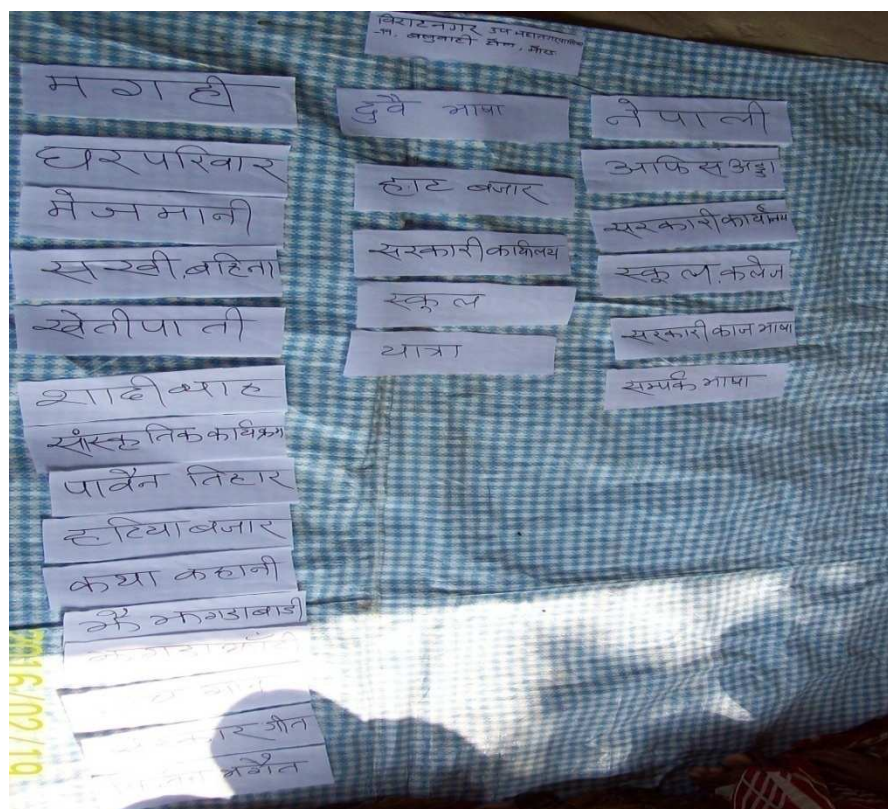 विराटनगर उप महानगरपालिका
-११,
मगही
घरपरिवार
मेजमानी
सखी.बहिना
खेतीपाती
शादी ब्याह
सांस्कृतिक कार्यक्रम
पावैन तिहार
हटिया बजार
कथा कहानी
झै झगडा बाडी
गीत
भगैत
दुवै भाषा
हाट बजार
सरकारी कार्यालय
स्कुल
यात्रा
नेपाली
आफिस अड्डा
सरकारी कार्यालय
स्कूल.कलेज
सरकारी काज भाषा
सम्पर्क भाषा
2016/02/10